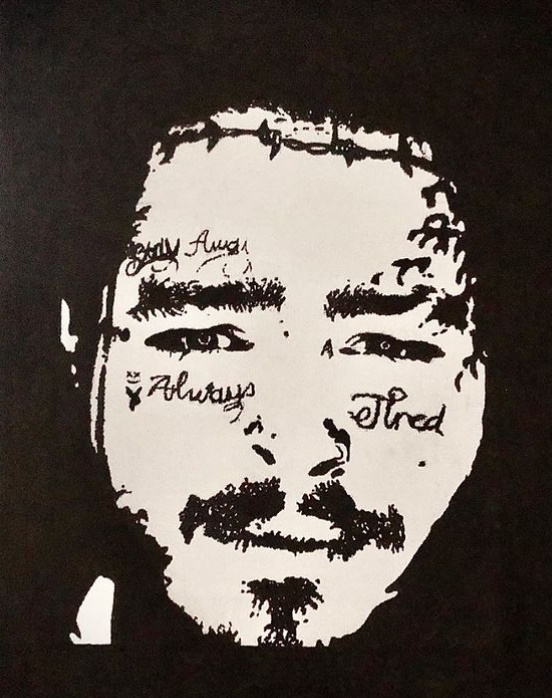 Stay Away
Always
Tired
A